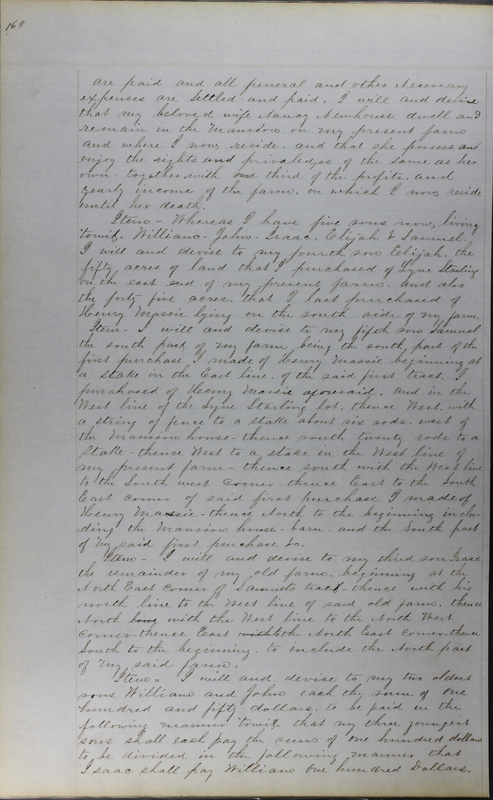 168
are paid and all funeral and other necessary
expenses are settled and paid, I will and devise
that my beloved wife Nancy Newhouse dwell and
remain in the Mansion on my present farm
and where I now reside. and that she possess and
enjoy the rights and priviledges of the same as her
own. together with one third of the profits and
yearly income of the farm. on which I now reside
until her death.
Item - Whereas I have five sons now living
towit. William - John - Isaac. Elijah & Samuel.
I will and devise to my fourth son Elijah. the
fifty acres of land that I purchased of Lyne Starling
on the east end of my present farm. and also
the forty five acres. that I last purchased of
Henry Massie lying on the south side of my farm.
Item - I will and devise to my fifth son Samuel
the south part of my farm being the south part of the
first purchase I made of Henry Massie beginning at
a stake in the East line. of the said first tract. I
purchased of Henry Massie aforesaid. and in the
West line of the Lyne Starling lot. thence West with
a string of fence to a stake about six rods. west of
the Mansion house - thence south twenty rods to a
Stake - thence West to a stake in the West line of
my present farm - thence south with the West line
to the South west Corner - thence East to the South
East corner of said first purchase I made of
Henry Massie - thence North to the beginning inclu-
ding the Mansion house - barn - and the South part
of my said first purchase &c.
Item - I will and devise to my third son Isaac
the remainder of my old farm. beginning at the
North East Corner of Samuels tract - thence with his
north line to the West line of said old farm. thence
North with the West line to the North West
Corner - thence East with the North East corner. thence
South to the beginning. to include the North part
of my said farm.
Item. I will and devise to my two oldest
sons William and John each the sum of one
hundred and fifty dollars. to be paid in the
following manner towit. that my three youngest
sons shall each pay the sum of one hundred dollars
to be divided in the following manner. that
Isaac shall pay William One hundred Dollars.